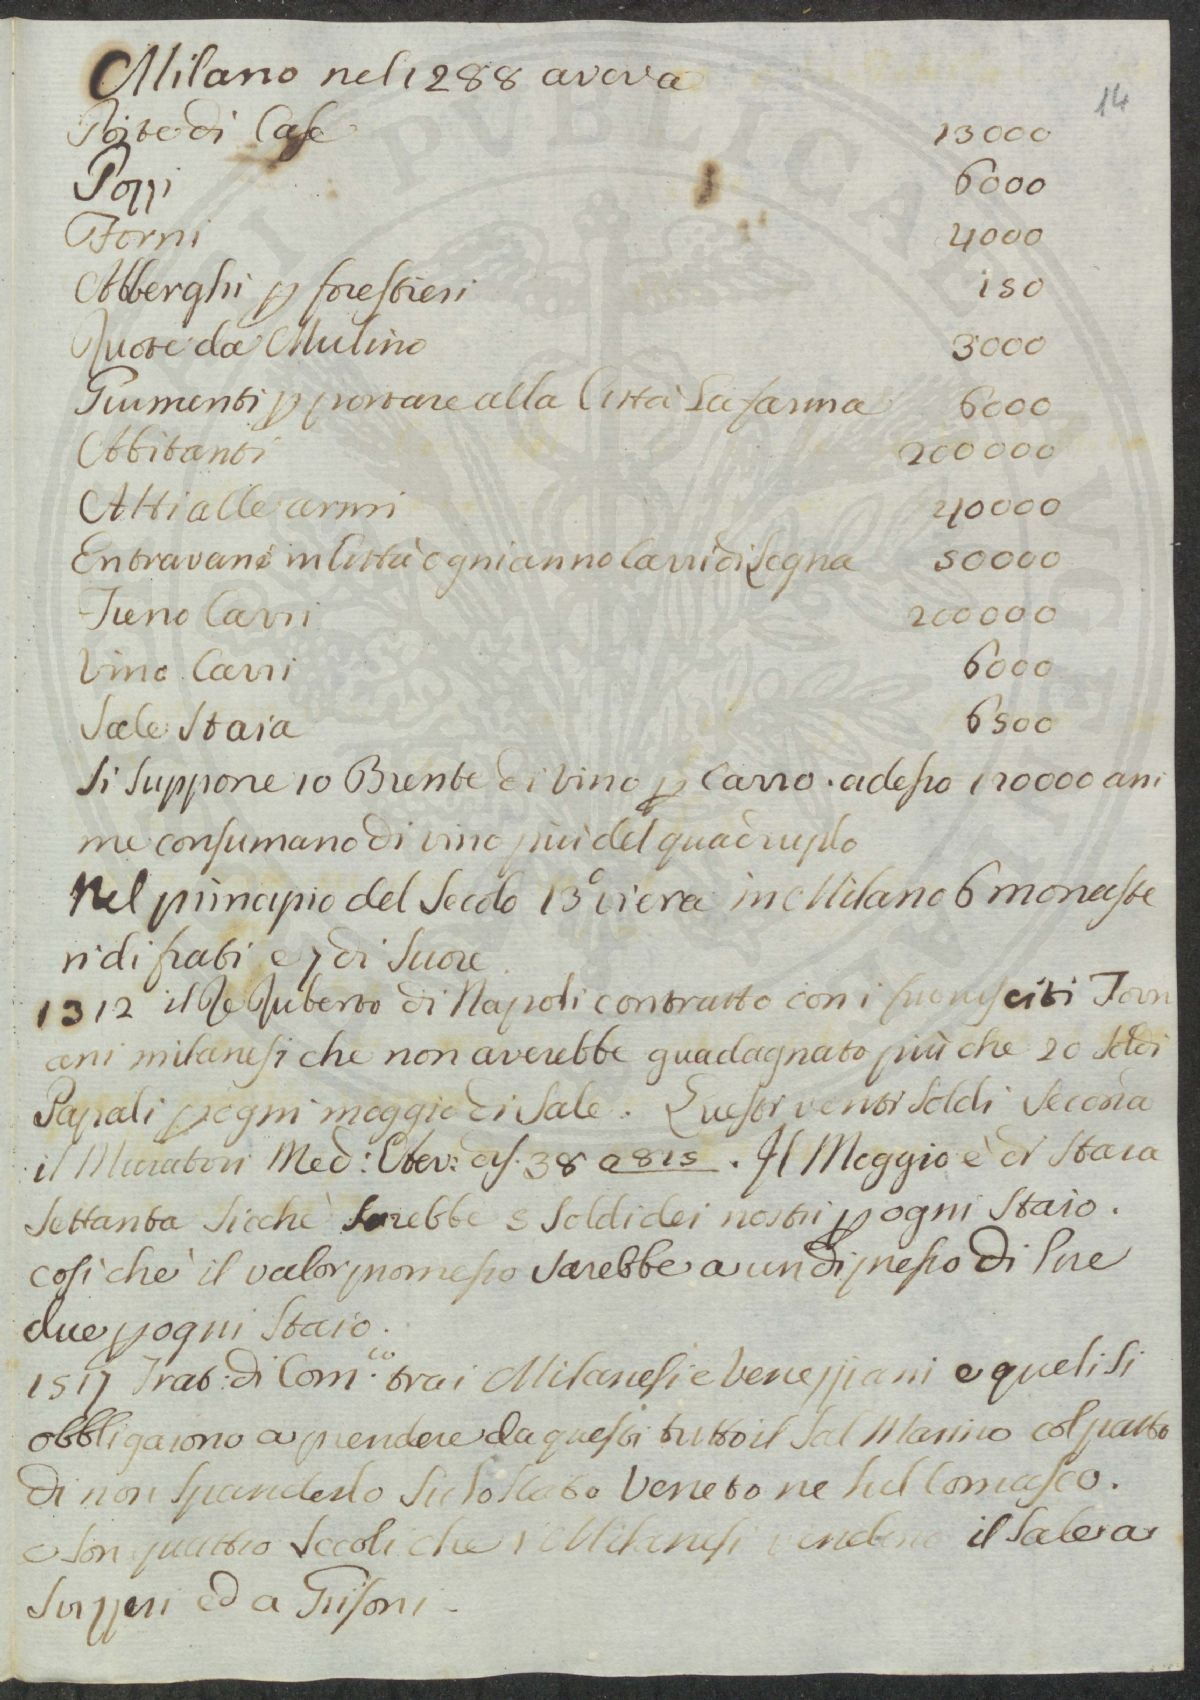 14
Milano nel 1288 aveva
Porte di Case 13000
Pozzi 6000
Forni 4000
Alberghi p forestieri 150
Ruote da Mulino 3000
Giumenti p portare alla Città La farina 6000
Abitanti 200000
Atti alle armi 40000
Entravano in Città ogni anno Carri di Legna 50000
Fieno Carri 200000
Vino Carri 6000
Sale Staia 6500
Si suppone 10 Brente di Vino p Carro. adesso 120000 ani
me consumano di vino più del quadruplo
Nel principio del Secolo 13° vi era in Milano 6 monaste
ri di frati e 7 di Suore.
1312 il Re Ruberto di Napoli contratto con i fuorusciti Torri
ani milanesi che non averebbe guadagnato più che 20 soldi
Papali p ogni moggio di Sale. Questi venti Soldi Secondo
il Muratori Med: Etev: dis. 38 a 815. Il Moggio è di Staia
Settanta Sicchè Sarebbe 5 Soldi dei nostri p ogni Staio.
cosi chè il valor promesso sarebbe a un di presso di lire
due p ogni Staio.
1517 Trat: di Com.co tra i Milanesi e Veneziani e queli si
obbligarono a prendere da questi tutto il Sal Marino col patto
di non spanderlo su lo Stato Veneto ne sul Comasco.
e son quattro Secoli che i Milanesi vendono il Sale a
Svizzeri ed a Grisoni.